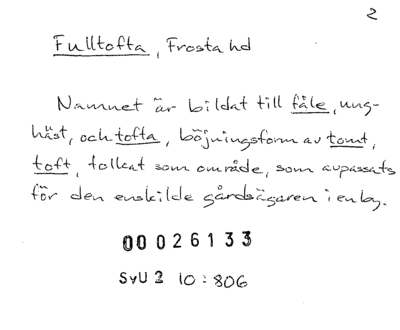 2
Fulltofta, Frosta hd
Namnet är bildat till fåle, ung-
häst, och tofta, böjningsform av tomt,
toft, tolkat som område, som avpassats
för den enskilde gårdsägaren i en by.
00026133
SvU 2 10:806